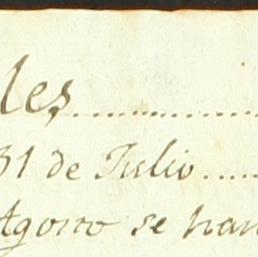 les..................
31 de Julio......
Agosto se han